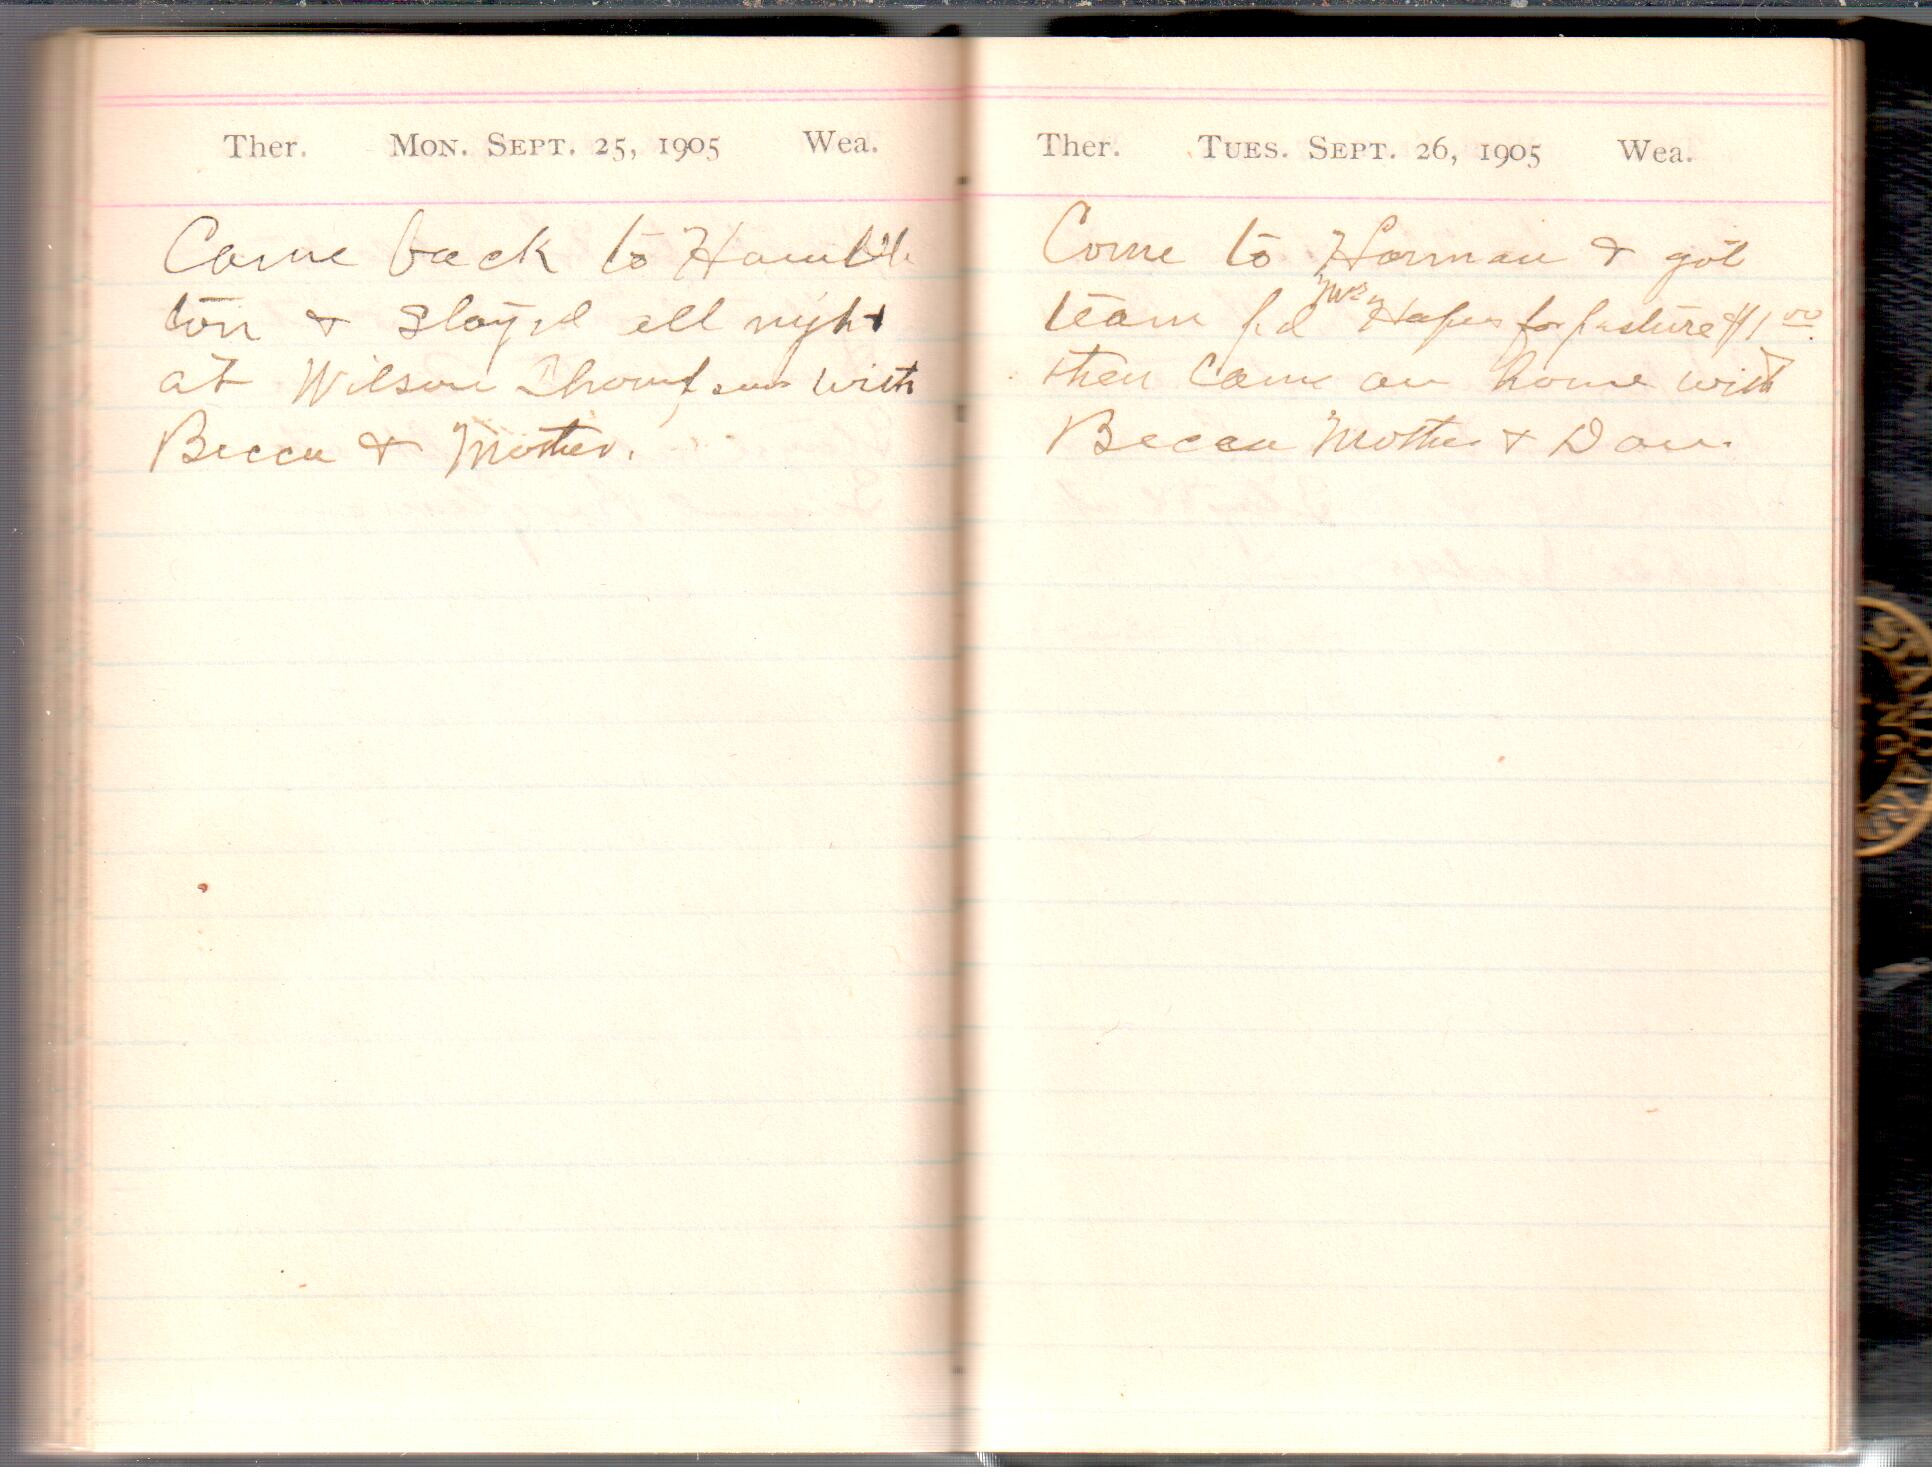 Ther. Mon. Sept. 25, 1905 Wea.
Came back to Hamil
ton & Stayed all night
at Wilson Thompsons with
Becca & Mother.
Ther. Tues. Sept. 26, 1905 Wea.
Come to & got
team pd Mrs for pasture $1 00
then came on home with
Becca Mother &